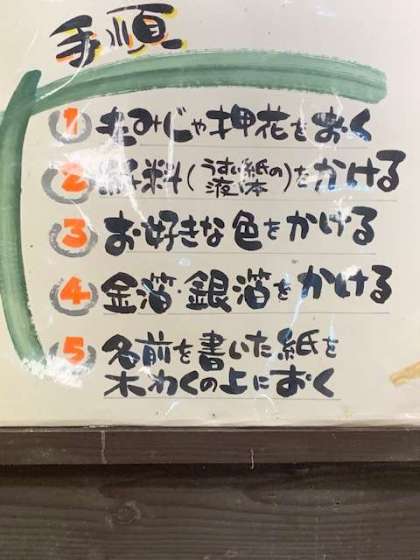 手順
1 もみじや押花をおく
2 紙料(うすい紙の液体)をかける
3 お好きな色をかける
4 金箔・銀箔をかける
5 名前を書いた紙を
木わくの上におく